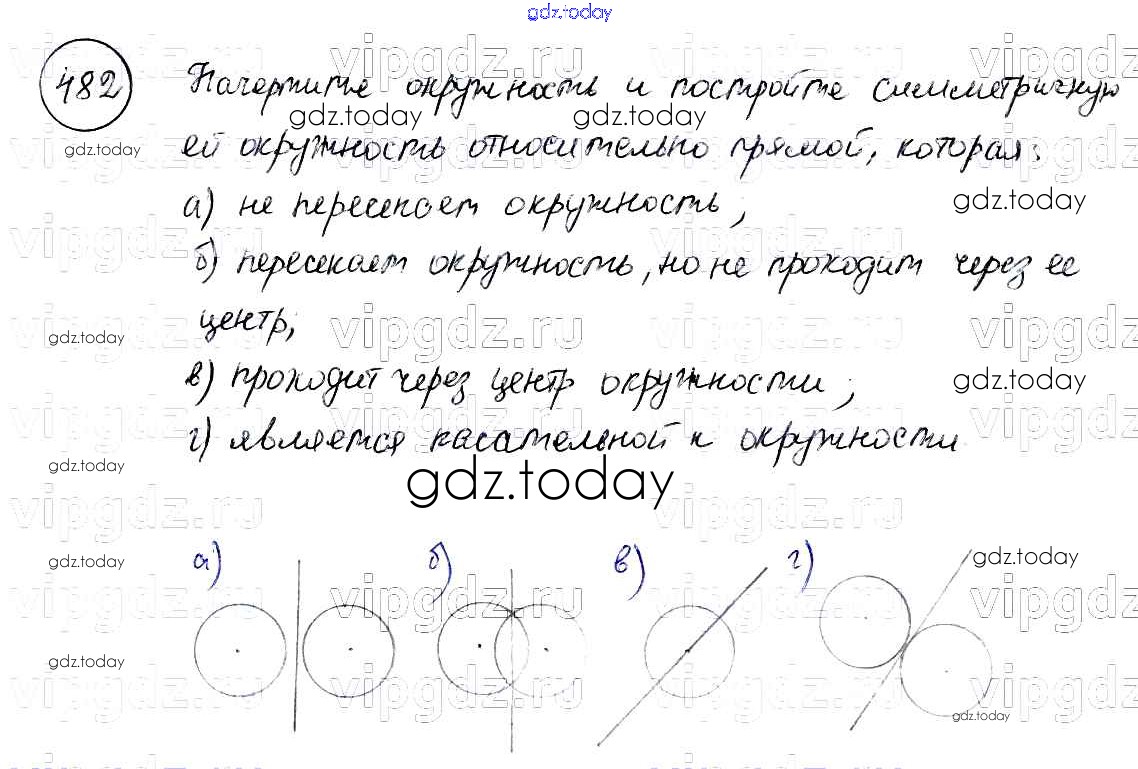 gdz.today
482 Начертите окружность и постройте симметричную
gdz.today gdz.today
gdz.today ей окружность относительно прямой, которая:
а) не пересекает окружность; gdz.today
б) пересекает окружность, но не проходит через ее
gdz.today центр; vipgdz.ru vipgdz.ru vipgdz.ru
в) проходит через центр окружности; gdz.today
г) является касательной к окружности
gdz.today gdz.today
а) б) в) г)
gdz.today gdz.today
gdz.today
gdz.today